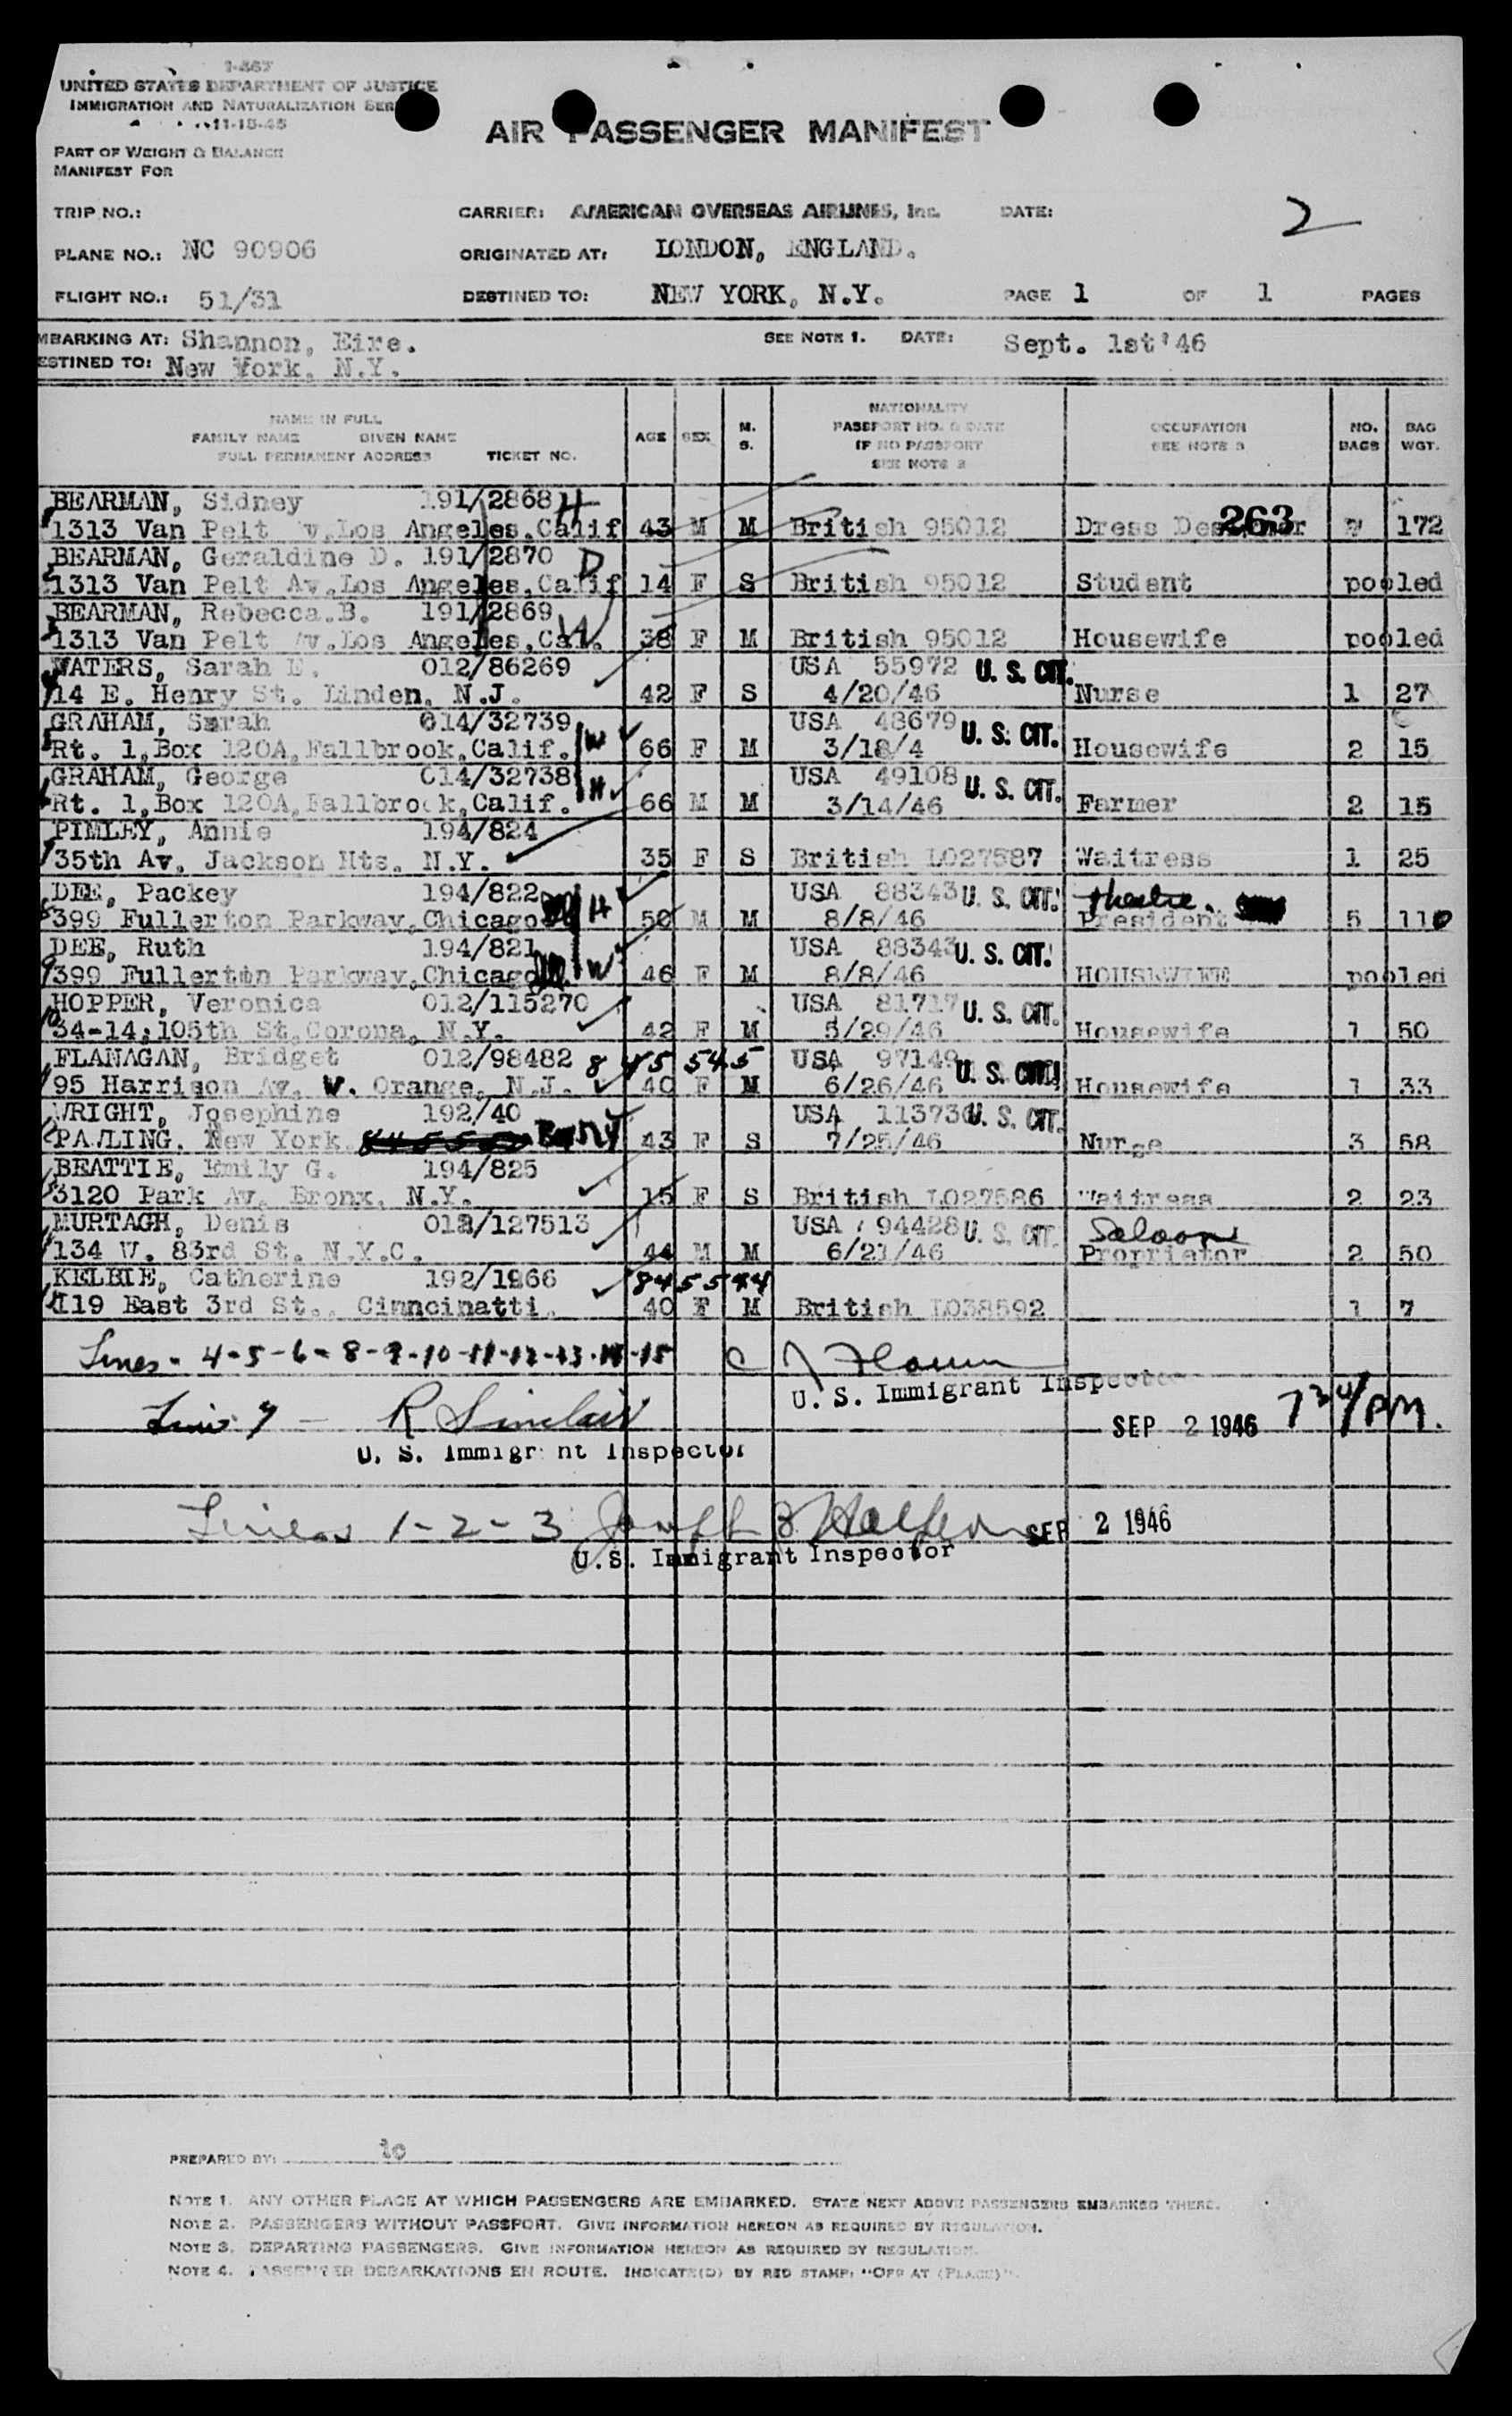 I-467
UNITED STATES DEPARTMENT OF JUSTICE
IMMIGRATION AND NATURALIZATION SER
11-15-45
AIR PASSENGER MANIFEST
PART OF WEIGHT & BALANCE
MANIFEST FOR
TRIP NO.: CARRIER: AMERICAN OVERSEAS AIRLINES, Inc. DATE: 2
PLANE NO.: NC 90906 ORIGINATED AT: LONDON, ENGLAND.
FLIGHT NO.: 51/31 DESTINED TO: NEW YORK, N.Y. PAGE 1 OF 1 PAGES
MBARKING AT: Shannon, Eire. SEE NOTE 1. DATE: Sept. 1st'46
ESTINED TO: New York, N.Y.
NAME IN FULL
FAMILY NAME GIVEN NAME
FULL PERMANENT ADDRESS TICKET NO.
AGE SEX M. S.
NATIONALITY
PASSPORT NO. & DATE
IF NO PASSPORT
SEE NOTE 2
OCCUPATION
SEE NOTE 3
NO. BAGS
BAG WGT.
BEARMAN, Sidney 191/2868 H
1 1313 Van Pelt Av.Los Angeles.Calif 43 M M British 95012 Dress Designer 263 172
BEARMAN, Geraldine D. 191/2870 D
2 1313 Van Pelt Av.Los Angeles,Calif 14 F S British 95012 Student pooled
BEARMAN, Rebecca.B. 191/2869 W
3 1313 Van Pelt Av.Los Angeles,Cal. 38 F M British 95012 Housewife pooled
WATERS, Sarah E. 012/86269 USA 55972 U. S. CIT.
4 14 E. Henry St. Linden, N.J. 42 F S 4/20/46 Nurse 1 27
GRAHAM, Sarah 014/32739 W USA 48679 U. S. CIT.
5 Rt. 1,Box 120A,Fallbrook,Calif. 66 F M 3/18/4 Housewife 2 15
GRAHAM, George 014/32738 H USA 49108 U. S. CIT.
6 Rt. 1,Box 120A,Fallbrook,Calif. 66 M M 3/14/46 Farmer 2 15
PIMLEY, Annie 194/824
7 35th Av. Jackson Hts. N.Y. 35 F S British L027587 Waitress 1 25
DEE, Packey 194/822 Ill H USA 88343 U. S. CIT. Theatre.
8 399 Fullerton Parkway,Chicago 50 M M 8/8/46 President 5 110
DEE, Ruth 194/821 W USA 88343 U. S. CIT.
9 399 Fullerton Parkway,Chicago Ill. 46 F M 8/8/46 HOUSEWIFE pooled
HOPPER, Veronica 012/115270 USA 81717 U. S. CIT.
10 34-14;105th St.Corona, N.Y. 42 F M 5/29/46 Housewife 1 50
FLANAGAN, Bridget 012/98482 8 45 545 USA 97149 U. S. CIT.
11 95 Harrison Av. W. Orange, N.J. 40 F M 6/26/46 Housewife 1 33
WRIGHT, Josephine 192/40 USA 113730 U. S. CIT.
12 PAWLING. New York. 43 F S 7/25/46 Nurse 3 58
BEATTIE, Emily G. 194/825
13 3120 Park Av. Bronx, N.Y. 15 F S British L027586 Waitress 2 23
MURTAGH, Denis 012/127513 USA 94428 U. S. CIT. Saloon
14 134 W. 83rd St. N.Y.C. 44 M M 6/21/46 Proprietor 2 50
KELBIE, Catherine 192/1966 8455944
15 119 East 3rd St.. Cinncinatti. 40 F M British L038592 1 7
Lines - 4-5-6-8-9-10-11-12-13-14-15
U. S. Immigrant Inspector
Line 7 - R Sinclair SEP 2 1946 7 30/PM.
U. S. Immigrant Inspector
Lines 1-2-3 Joseph B. Halpern SEP 2 1946
U.S. Immigrant Inspector
PREPARED BY: to
NOTE 1. ANY OTHER PLACE AT WHICH PASSENGERS ARE EMBARKED. STATE NEXT ABOVE PASSENGERS EMBARKED THERE.
NOTE 2. PASSENGERS WITHOUT PASSPORT. GIVE INFORMATION HEREON AS REQUIRED BY REGULATION.
NOTE 3. DEPARTING PASSENGERS. GIVE INFORMATION HEREON AS REQUIRED BY REGULATION.
NOTE 4. PASSENGER DEBARKATIONS EN ROUTE. INDICATE(D) BY RED STAMP: "OFF AT (PLACE)".